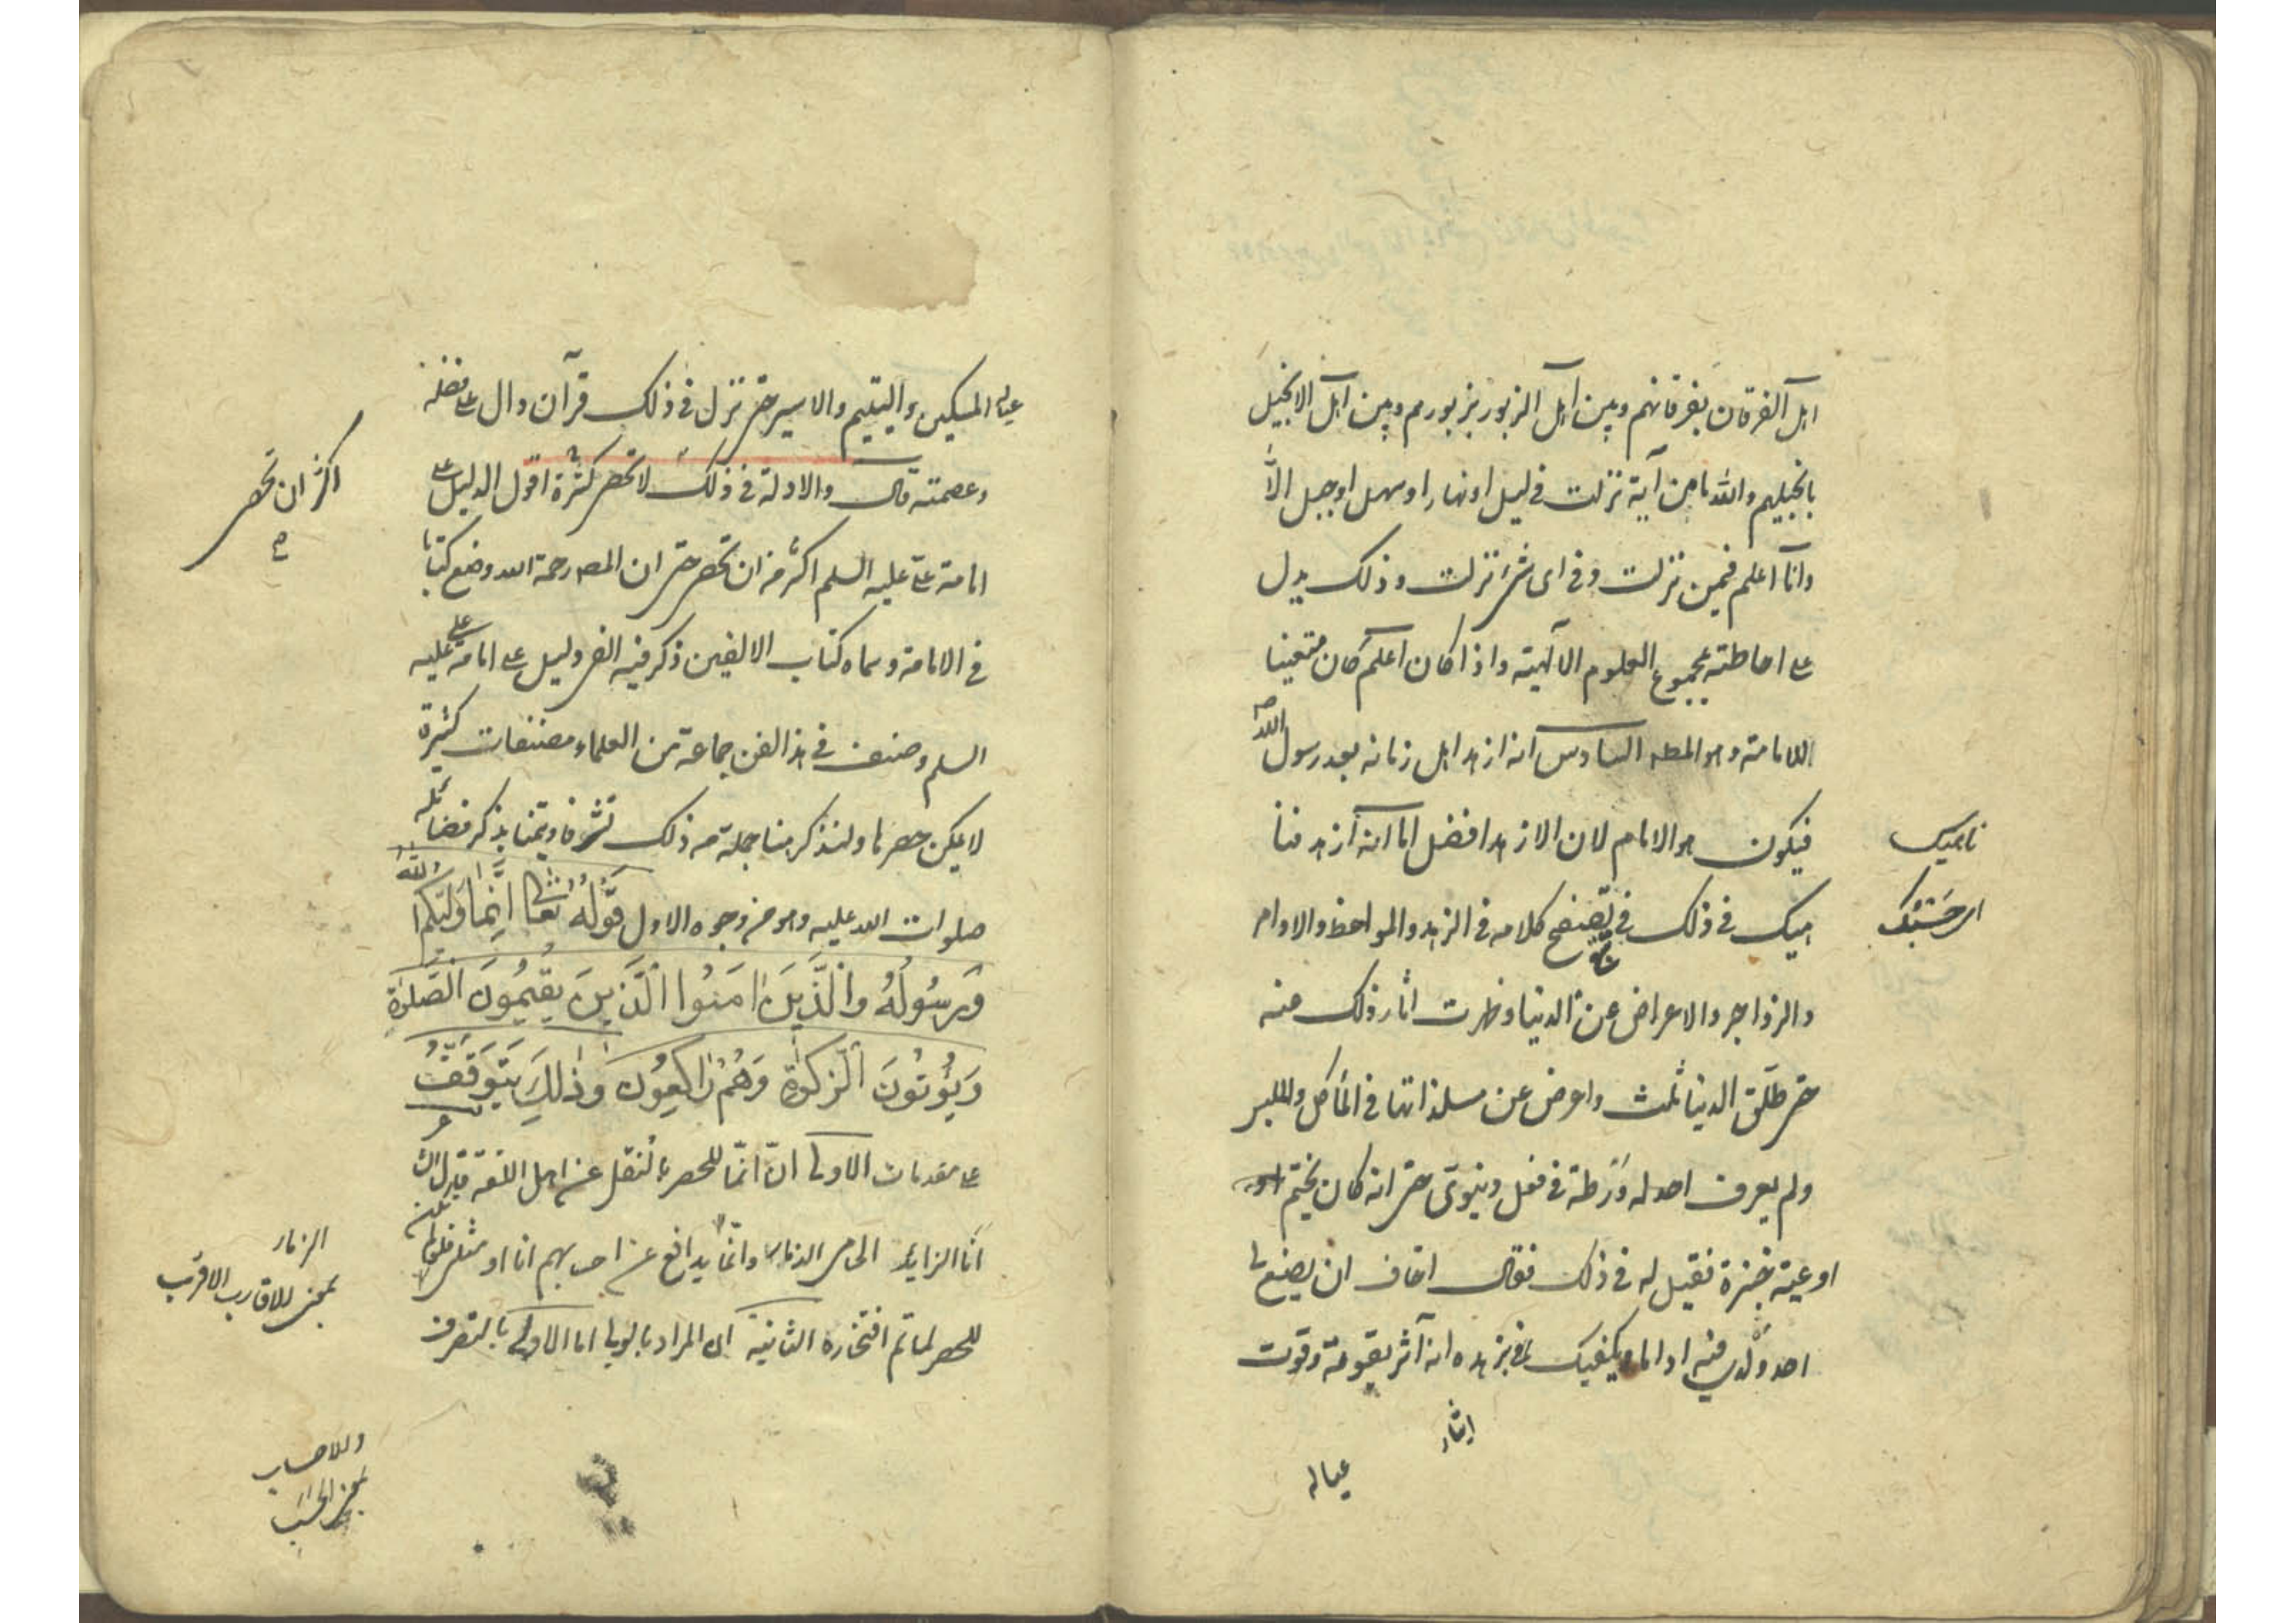 اهل الفرقان بفرقانهم وبين اهل الزبور بزبورهم وبين اهل الانجيل
بانجيلهم والله ما من آية نزلت في ليل او نهار او سهل او جبل الا
وانا اعلم فيمن نزلت وفي اى شئ نزلت وذلك يدل
على احاطته بمجموع العلوم الالهية واذا كان اعلم كان متعينا
للامامة وهو المط السادس انه ازهد اهل زمانه بعد رسول الله ص
فيكون هو الامام لان الازهد افضل اما انه ازهد فنا
هيك في ذلك في تصفح كلامه في الزهد والمواعظ والاوامر
والزواجر والاعراض عن الدنيا وظهرت اثار ذلك عنه
حتى طلق الدنيا ثلث واعرض عن مستلذاتها في المأكل والملبس
ولم يعرف احد له ورطة في فعل دنيوى حتى انه كان يختم
اوعية خبزه فقيل له في ذلك فقال اخاف ان يضع لى
احد ولدى فيه اداما ويكفيك في زهده انه آثر بقوته وقوت
ايثار
عياله
ناهيك
اى حسبك
عياله المسكين واليتيم والاسير حتى نزل في ذلك قرآن دال على فضله
وعصمته قال والادلة في ذلك لا تحصر كثرة اقول الدليل على
امامة على عليه السلم اكثر من ان تحصر حتى ان المص رحمة الله وضع كتابا
في الامامة وسماه كتاب الالفين ذكر فيه الفى دليل على امامة على عليه
السلم وصنف في هذا الفن جماعة من العلماء مصنفات كثيرة
لا يمكن حصرها ولنذكر هنا جملة من ذلك تشرفا وتيمنا بذكر فضائله
صلوات الله عليه وهو من وجوه الاول قوله تعالى انما وليكم الله
ورسوله والذين امنوا الذين يقيمون الصلوة
ويؤتون الزكوة وهم راكعون وذلك يتوقف
على مقدمات الاولى ان انما للحصر بالنقل عن اهل اللغة قول الشاعر
انا الزايد الحامى الذمار وانما يدافع عن احسابهم انا او مثلى فلو لم يكن
للحصر لما تم افتخاره الثانية ان المراد بالولى اما الاولى بالتصرف
اكثر ان تحصر
الذمار
بمعنى للاقارب الاقرب
وللاحساب
بمعنى الحسب